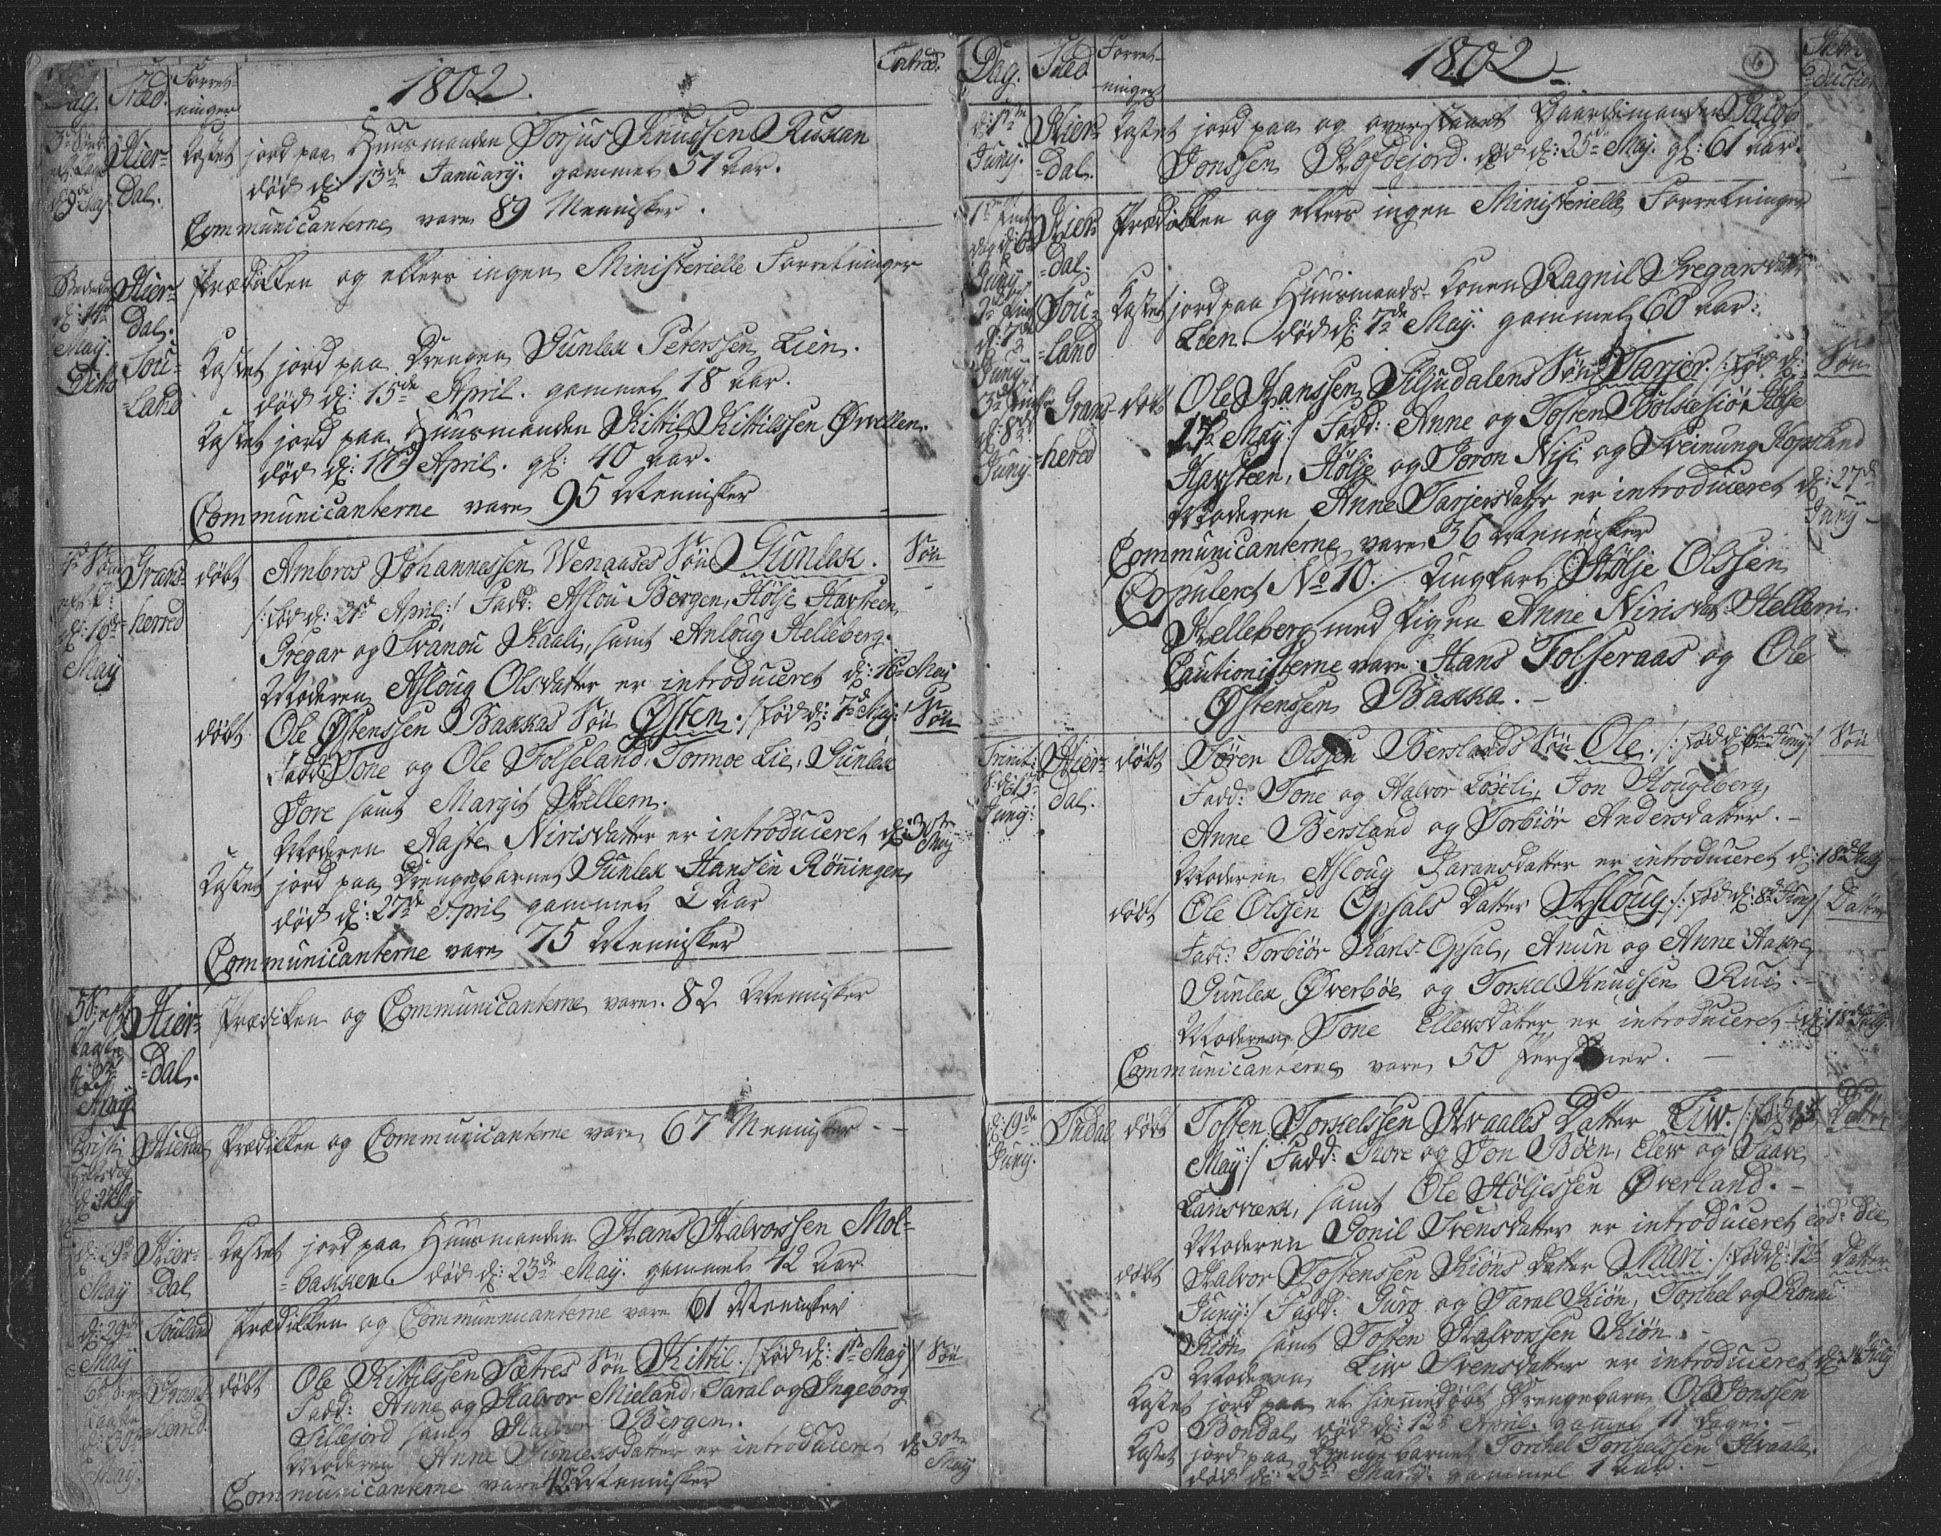 Dag. Sted. Forret-
ninger
1802.
Introd.
3de Sønd.
Hier-
dal.
Kastet jord paa Huusmanden Torjus Knudssen Ruskan
død d: 13de January. gammel 51 Aar.
Communicanterne vare 89 Mennisker.
Bededag
d: 14de
May.
Hier-
dal.
Prædikken og ellers ingen Ministerielle Forretninger
Dito
Sou-
land
Kastet jord paa Drengen Gunlek Peterssen Lien.
død d: 15de April. gammel 18 Aar.
Kastet jord paa Huusmanden Kittil Kittilssen Ørvellen.
død d: 17de April. gl: 40 Aar.
Communicanterne vare 95 Mennisker
4de Søn
d: 16de
May
Grans-
herred
døbt
Ambros Johannessen Wenaases Søn Gunlek.
Søn
/: fød d: 21de April :/ Fadd: Aslou Bergen, Hølje Havsteen,
Gregar og Svanou Kaali, samt Anloug Helleberg.
Moderen Asloug Olsdatter er introduceret d: 16de May
døbt
Ole Østenssen Bakkas Søn Østen. /: fød d: 7de May :/
Søn
Fadd: Tone og Ole Folseland, Tormoe Lie, Gunlek
Jore samt Margit Hellem.
Moderen Aaste Nirisdatter er introduceret d: 30te May
Kastet jord paa Drengebarnet Gunlek Hansen Rønningen
død d: 27de April gammel 2 Aar
Communicanterne vare 75 Mennisker
5 S: eft.
Paaske
May
Hier-
dal.
Prædiken og Communicanterne vare 82 Mennisker
Christi
d: 27 May
Hierdal
Prædikken og Communicanterne vare 67 Mennisker
d: 29de
May
Hier-
dal
Kastet jord paa Huusmanden Hans Halvorssen Mol-
bakken. død d: 23de May. gammel 42 Aar
d: 29de
May
Souland
Prædikken og Communicanterne vare 61 Mennisker
6te S: e:
Paaske
d: 30te
May.
Grans-
herred.
døbt
Ole Kittilssen Sætres Søn Kittil. /: fød d: 1te May :/
Søn
Fadd: Anne og Halvor Mieland, Taral og Ingeborg
Sillejord samt Halvor Bergen.
Moderen Anne Gunleksdatter er introduceret d: 30te May
Communicanterne vare 42 Mennisker
Dag. Sted Forret-
ninger
1802
6
Intro-
duction
d: 1te
Juny.
Hier-
dal.
Kastet jord paa og overstaart Gaardmanden Jacob
Jonssen Hofdejord. død d: 25de May. gl: 61 Aar.
1te Pintse
dag d: 6te
Juny
Hier-
dal.
Prædikken og ellers ingen Ministerielle Forretninger
2de Pints
d: 7de
Juny
Sou-
land
Kastet jord paa Huusmands-Konen Ragnil Gregarsdatter
Lien død d: 7de May. gammel 60 Aar.
3de Pintse
d: 8de
Juny.
Grans-
herred
døbt
Ole Hanssen Siljudalens Søn Tarjer. /: fød d:
Søn
17de May :/ Fadd: Anne og Tosten Bolkesiø, Hølje
Havsteen, Hølje og Joron Nisi og Steinung Hopsland
Moderen Anne Tarjersdatter er introduceret d: 27de
Juny
Communicanterne vare 36 Mennisker
Copuleret No 10. Ungkarl Hølje Olssen
Helleberg med Pigen Anne Nirisdat: Hellem.
Cautionisterne vare Hans Folseraas og Ole
Østenssen Bakka.
Trinit:
S: d: 13de
Juny:
Hier-
dal.
døbt
Søren Olssen Berslands Søn Ole. /: fød d: 6te Juny :/
Søn
Fadd: Tone og Halvor Løxeli, Jon Hougeberg,
Anne Bersland og Torbiør Andersdatter.
Moderen Asloug Taransdatter er introduceret d: 18de July
døbt
Ole Olssen Opsals Datter Asloug. /: fød d: 8de Juny :/
Datter
Fadd: Torbiør Karls-Opsal, Anun og Anne Aakre,
Gunlek Øverbøe og Torkel Knudssen Rui.
Moderen Tone Ellewsdatter er introduceret d: 18de July.
Communicanterne vare 50 Personer.
d: 19de
Juny.
Tudal
døbt
Tosten Torkelssen Hvaales Datter Liw. /: fød d: 15de
Datter
May :/ Fadd: Thore og Jon Bøen, Elew og Paave
Lansverk, samt Ole Høljessen Øverland.
Moderen Gonil Svensdatter er introduceret eod: die
døbt
Halvor Tostenssen Kiøns Datter Mari. /: fød d: 1te
Datter
Juny :/ Fadd: Guro og Taral Kiøn, Torchel og Ronnu
Kiøn samt Tosten Halvorssen Kiøn.
Moderen Liw Svensdatter er introduceret d: 14 July
Kastet jord paa et hiemmedøbt Drengebarn, Ole Jonssen
Bondal, død d: 12te April. gammel 11 Dage.
Kastet jord paa Drengebarnet Torchel Torchelssen Hvaale.
død d: 25de Marty. gammel 1 Aar.